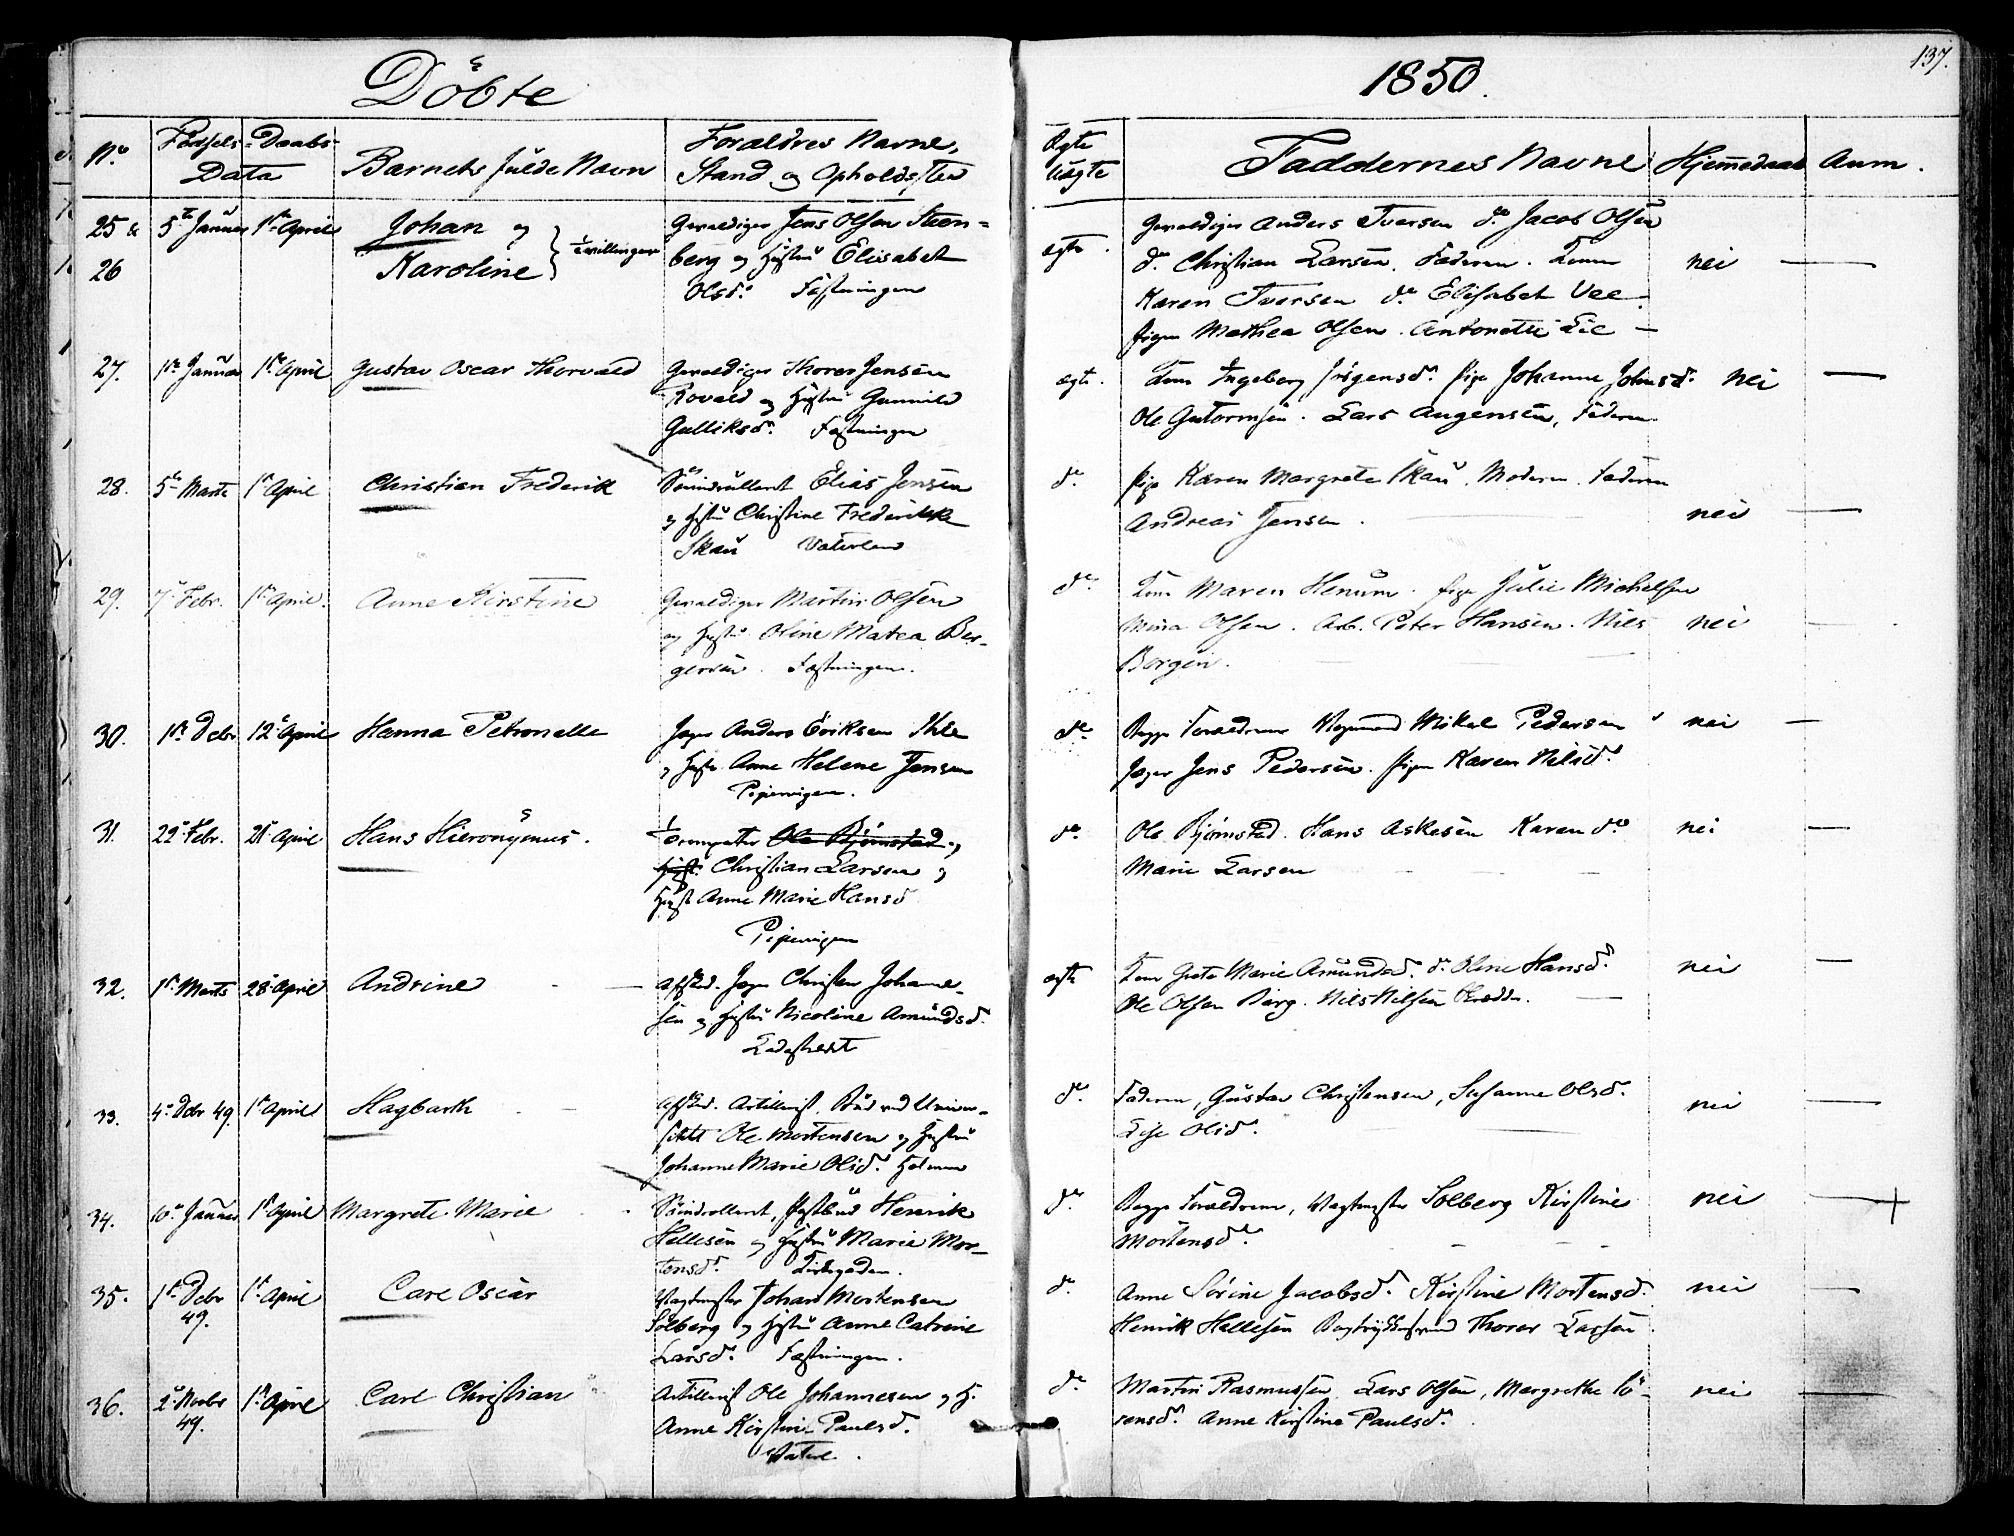 Döbte
1850.
137.
No
Födsels- Daabs-
Data
Barnets fulde Navn
Forældres Navne,
Stand og Opholdssted
Ægte
Uægte
Faddernes Navne
Hjemmedaab
Anm.
25 &
26
5te Januar
1ste April
Johan og
Karoline
Tvillinger
Gevaldiger Jens Olsen Steen-
berg og Hustru Elisabet
Olsd. Fæstningen
ægte.
Gevaldiger Anders Iversen do Jacob Olsen
do Christian Larsen. Faderen. Kone
Karen Iversen do Elisabet Vee.
Pigen Mathea Olsen. Antonette Lie —
nei —
27.
1ste Januar
1ste April
Gustav Oscar Thorvald
Gevaldiger Thorer Jensen
Rovald og Hustru Gunnild
Gulliksd. Fæstningen
ægte.
Kone Ingeborg Jörgensd. Pige Johanne Johnsd.
Ole Gutormsen. Lars Augensen, Faderen.
nei —
28.
5te Marts
1ste April
Christian Frederik
Söindrulleret Elias Jensen
og Hustru Christine Frederikke
Skau Vaterland
do
Pige Karen Margrete Skau. Moderen. Faderen
Andreas Jensen.
nei —
29.
7de Febr.
1ste April.
Anne Kirstine
Gevaldiger Martin Olsen
og Hustru Oline Matea Ber-
gersen. Fæstningen.
do
Kone Maren Henum. Pige Julie Michelsen
Mina Olsen. Arb. Peter Hansen. Nils
Borgen.
nei —
30.
1ste Debr
12te April
Hanna Petronelle
Jæger Anders Eriksen Ihle
og Hustru Anne Helene Jensen
Pipervigen.
do
Begge Forældrene Mikal Pedersen
Jæger Jens Pedersen. Pigen Karen Nilsd.
nei —
31.
22de Febr.
21de April
Hans Hieronymus.
Trompeter Ole Björnstad og
Hustr. Christian Larsen og
Hust Anne Marie Hansd
Pipervigen
do
Ole Björnstad. Hans Askesen Karen do
Marie Larsen
nei —
32.
1ste Marts
28de April
Andrine
Afsked. Jæger Christen Johane-
sen og Hustru Nicoline Amundsd.
Ladestedet
ægte
Kone Grete Marie Amundsd. do Oline Hansd.
Ole Olsen Berg. Nils Nilsen
nei —
33.
4de Debr 49.
1ste April
Hagbarth
Afsked. Artillerist, Bud ved Univer-
sitetet Ole Mortensen og Hustru
Johanne Marie Olsd. Holmen
do
Faderen, Gustav Christensen, Susanne Olsd.
Lise Olsd.
nei —
34.
10de Januar
1ste April
Margrete Marie
Söindrolleret, Postbud Henrik
Hellesen og Hustru Marie Mor-
tensd.
do
Begge Forældrene, Vagtmester Solberg Kirstine
Mortensd.
nei —
35.
1ste Debr
49.
1ste April
Carl Oscar
Vagtmester Johan Mortensen
Solberg og Hustru Anne Catrine
Larsd. Fæstningen.
do
Anne Sörine Jacobsd. Kirstine Mortensd.
Henrik Hellesen Bogtrykkersvend Thorer Larsen
nei —
36.
2den Novbr
49.
1ste April
Carl Christian
Artillerist Ole Johannesen og H.
Anne Kirstine Paulsd.
Vaterl.
do
Martin Rasmussen Lars Olsen, Margrethe Sö-
rensd. Anne Kirstine Paulsd.
nei —